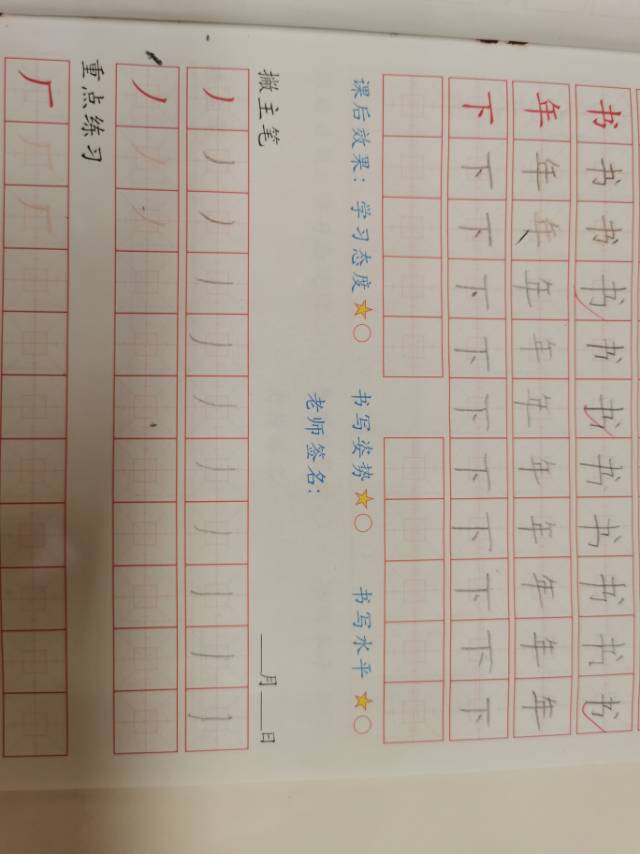 书书书书书书书书书书书
年年年年年年年年年年年
下下下下下下下下下下下
课后效果：学习态度 书写姿势 书写水平
老师签名：
撇主笔 月 日
丿丿丿丿丿丿丿丿丿丿丿
重点练习
厂厂厂